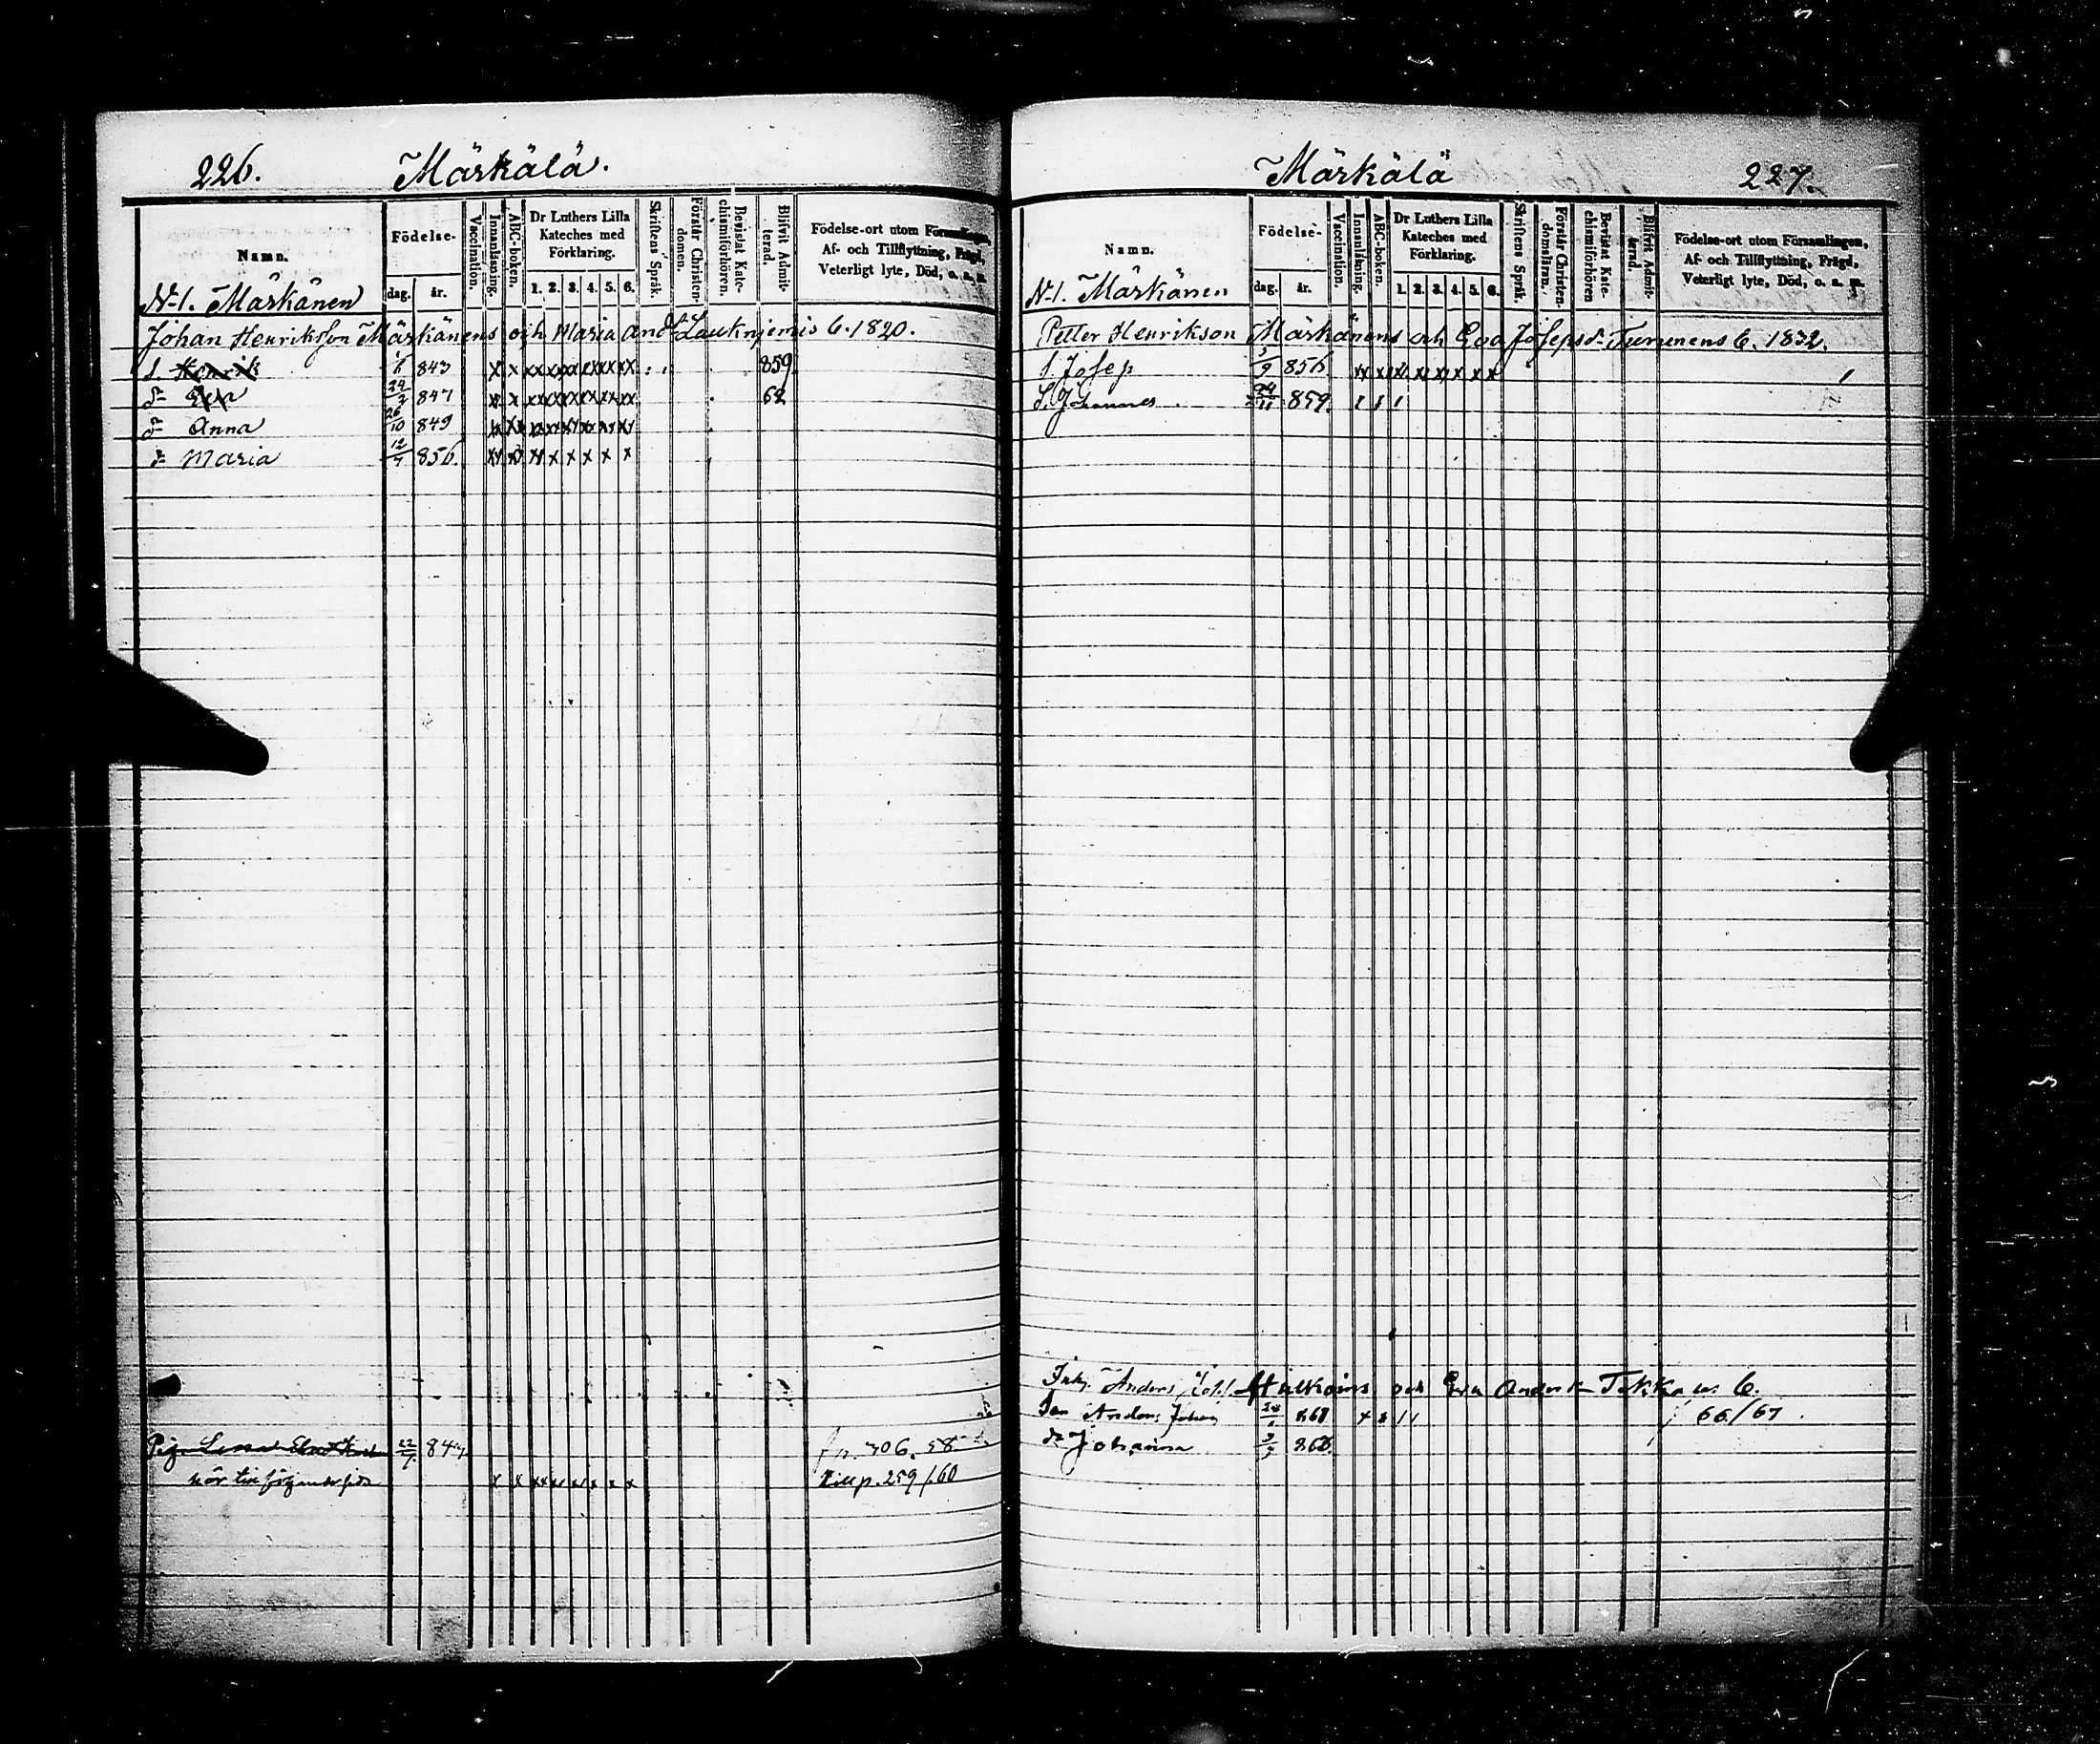 226. Märkälä.
Namn.
Födelse-
dag. år.
Vaccination.
Innanläsning.
ABC-boken.
Dr Luthers Lilla
Kateches med
Förklaring.
1. 2. 3. 4. 5. 6.
Skriftens Språk.
Förstår Christen-
domen.
Bevistat Kate-
chismiförhören.
Blifvit Admit-
terad.
Födelse-ort utom Församlingen,
Af- och Tillflyttning, Frägd,
Veterligt lyte, Död, o. s. m.
N-1. Märkänen
Johan Henrikson Märkänens och Maria And. b. 1820.
s. Henrik 843 x x xx xx xx xx xx xx 859
d- Eva 24/2 847 62
d- Anna 26/10 849
d- Maria 12/7 856.
Piga Lena 22/7 847 fr. p. 706. 58.
x x x x x x x x Till p. 259/60
Märkälä 227.
Namn.
Födelse-
dag. år.
Vaccination.
Innanläsning.
ABC-boken.
Dr Luthers Lilla
Kateches med
Förklaring.
1. 2. 3. 4. 5. 6.
Skriftens Språk.
Förstår Christen-
domsläran.
Bevistat Kate-
chismiförhören
Blifvit Admit-
terad.
Födelse-ort utom Församlingen,
Af- och Tillflyttning, Frägd,
Veterligt lyte, Död, o. s. m.
N-1. Märkänen
Petter Henrikson Märkänens och Eva Josepsd- Turunens b. 1832.
s. Josep 5/9 856
S. Johannes 24/11 859.
Anders och Eva Anders d- b.
Johan 861 66/67.
d- Johanna 866